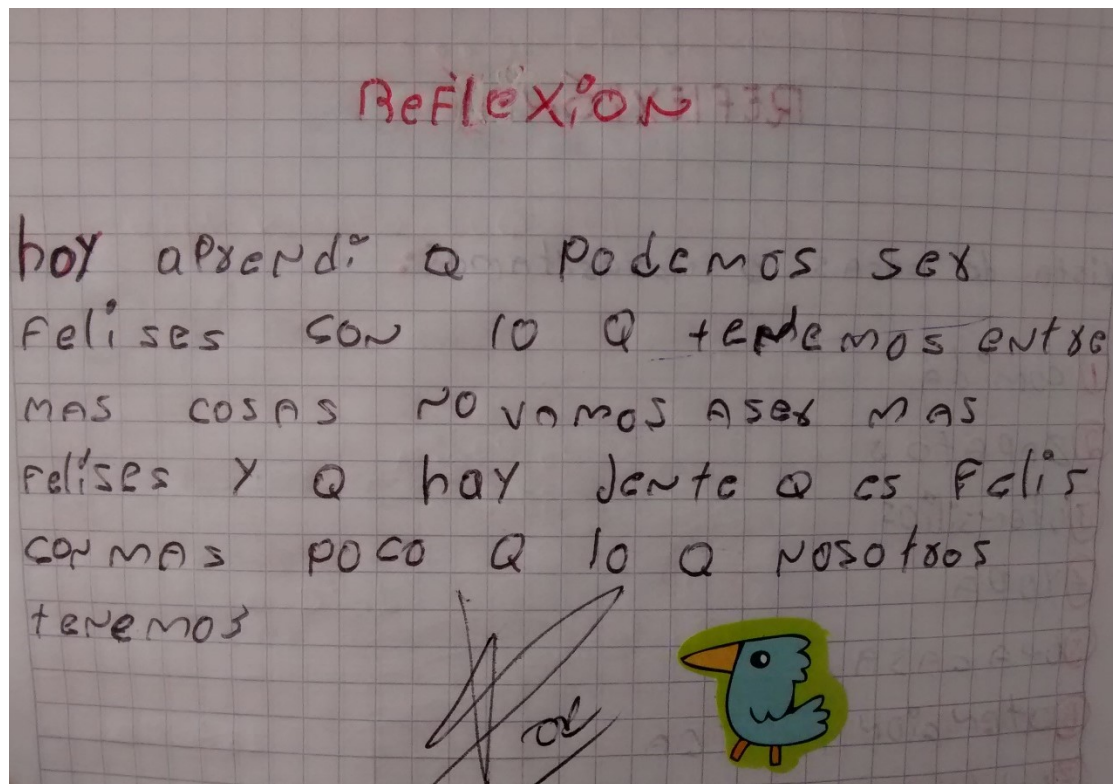 ReFleXiON
hoy aprendi Q podemos ser
Felises con lo Q tenemos entre
mas cosas no vamos aser mas
Felises y Q hay jente Q es Felis
con mas poco Q lo Q nosotros
tenemos